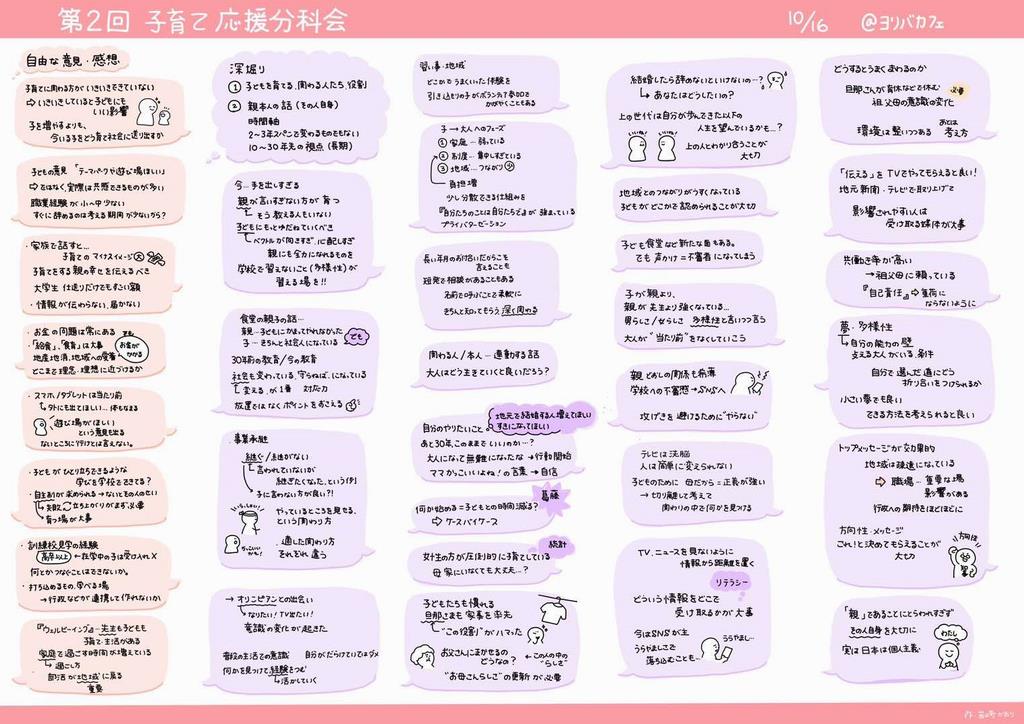 第2回 子育て応援分科会
10/16
@ヨリバカフェ
自由な意見・感想
子育てに関わる方がいきいきできていない
⇨いきいきしていると子どもにも
いい影響
子を増やすよりも、
今いる子をどう育て社会に送り出すか
子どもの意見「テーマパークや遊び場ほしい」
⇨ではなく、実際は共感できるものが多い
職業経験が小〜中 少ない
すぐに辞めるのは考える期間が少ないから?
・家族で話すと…
子育てのマイナスイメージ大
子育てをする親の幸せを伝えるべき
大学生 仕送りだけでもすごい額
・情報が伝わらない、届かない
・お金の問題は常にある
・「給食」、「食育」は大事
でも お金がかかる
地産地消、地域への愛着
どこまで理念・理想に近づけるか
・スマホ/タブレットは当たり前
↳外にも出てほしい…体もなまる
遊び場がほしい
という意見も出る
ないところに行けとは言えない。
・子どもがひとり立ちできるような
学びを学校でできてる?
・自主制が求められる→ないとその人のせい
↳失敗、立ち上がりがまず、必要
・育つ場が大事
・訓練校見学の経験
高卒以上 ←在学中の子は受け入れ×
何とかつなぐことはできないか。
・打ち込めるもの、学べる場
→行政などが連携して作れないか
『ウェルビーイング』…先生も子どもも
子育て・生活がある
家庭で過ごす時間が増えている
↳過ごし方
部活が地域に戻る
重要
深堀り
① 子どもを育てる、関わる人たち、役割
② 親本人の話(その人自身)
時間軸
2〜3年スパンで変わるものともない
10〜30年先の視点(長期)
今…手を出しすぎる
親が言いすぎない方が育つ
↳もう教える人もいない
子どもにもっとゆだねていくべき
↳ベクトルが向きすぎ、心配しすぎ
親にも全力になれるものを
学校で習えないこと(多様性)が
習える場を!!
食堂の親子の話…
親…子どもにかまってやれなかった
でも
子…きちんと社会人になっている
30年前の教育/今の教育
社会も変わっている、守らねば、になっている
↳変える、が1番 対応力
放置ではなくポイントをおさえる
・事業承継
継ぐ/継がない
↳言われていないが
継ぎたくなった、という例
子に言わない方が良い?!
やっているところを見せる、
という関わり方
かっこいいかも…
・適した関わり方
それぞれ違う
→オリンピアンとの出会い
↳なりたい!TV出たい!
意識の変化が起きた
普段の生活での意識 自分がだらけていてはダメ
何かを見つけて、経験をつむ
↳活かしていく
習い事・地域
どこかでうまくいった体験を
引き込もりの子がボランティア参加で
かがやくこともある
子→大人へのフェーズ
① 家庭…弱っている
② 制度…集中しすぎている
③ 地域…つながり少
負担増
少し分散できる仕組みを
『自分たちのことは自分たちで』が強まっている
プライバタリゼーション
長い年月のお付合いだからこそ
言えることも
短発で相談があることもある
名前で呼ぶことで柔軟に
きちんと知ってもらう、深く関わる
関わる人/本人…連動する話
大人はどう生きていくと良いだろう?
地元で結婚する人増えてほしい
すきになってほしい
自分のやりたいこと
あと30年、このままでいいのか…?
大人になって無難になったな→行動開始
ママかっこいいよね!の言葉→自信
葛藤
何か始める=子どもとの時間減る?
⇨ケースバイケース
統計
女性の方が圧倒的に子育てしている
母 家にいなくても大丈夫…?
子どもたちも慣れる
旦那さまも家事を率先
"この役割"がハマった
お父さんにまかせるの
どうなの? ←この人の中の
"らしさ"
"お母さんらしさ"の更新が必要
結婚したら辞めないといけないの…?
↳あなたはどうしたいの?
上の世代は自分が歩んできた以下の
人生を望んでいるかも…?
上の人とわかり合うことが
大切
地域とのつながりがうすくなっている
子どもがどこかで認められることが大切
子ども食堂など新たな面もある。
でも声かけ=不審者になってしまう。
子が親より、
親が先生より強くなっている…
男らしさ/女らしさ 多様性と言いつつ言う
大人が"当たり前"をなくしていこう
親どおしの関係も希薄
学校への不審感→SNSへ
攻げきを避けるために"やらない"
テレビは洗脳
人は簡単に変えられない
子どものために 母だから=正義が強い
→切り離して考えて
関わりの中で何かを見つける
TV、ニュースを見ないように
情報から距離を置く
リテラシー
どういう情報をどこで
受け取るかが大事
今はSNSが主
うらやましさで
落ち込むことも…
うらやまし…
どうするとうまくまわるのか
旦那さんが育休などで休む 必要
祖父母の意識の変化
環境は整いつつある あとは
考え方
「伝える」をTVでやってもらえると良い!
地元新聞・テレビで取り上げて
影響されやすい人は
受け取る媒体が大事
共働き率が高い
→祖父母に頼っている
『自己責任』⇨重荷に
ならないように
夢・多様性
↳自分の能力の壁
支える大人がいる、条件
自分で選んだ道にどう
折り合いをつけられるか
小さい夢でも良い
できる方法を考えられると良い
トップメッセージが効果的
地域は疎遠になっている
⇨職場…重要な場
影響がある
行政への期待をほどほどに
方向性・メッセージ
これ!と決めてもらえることが
大切
方向は、
「親」であることにとらわれすぎず
その人自身を大切に
わたし
実は日本は個人主義